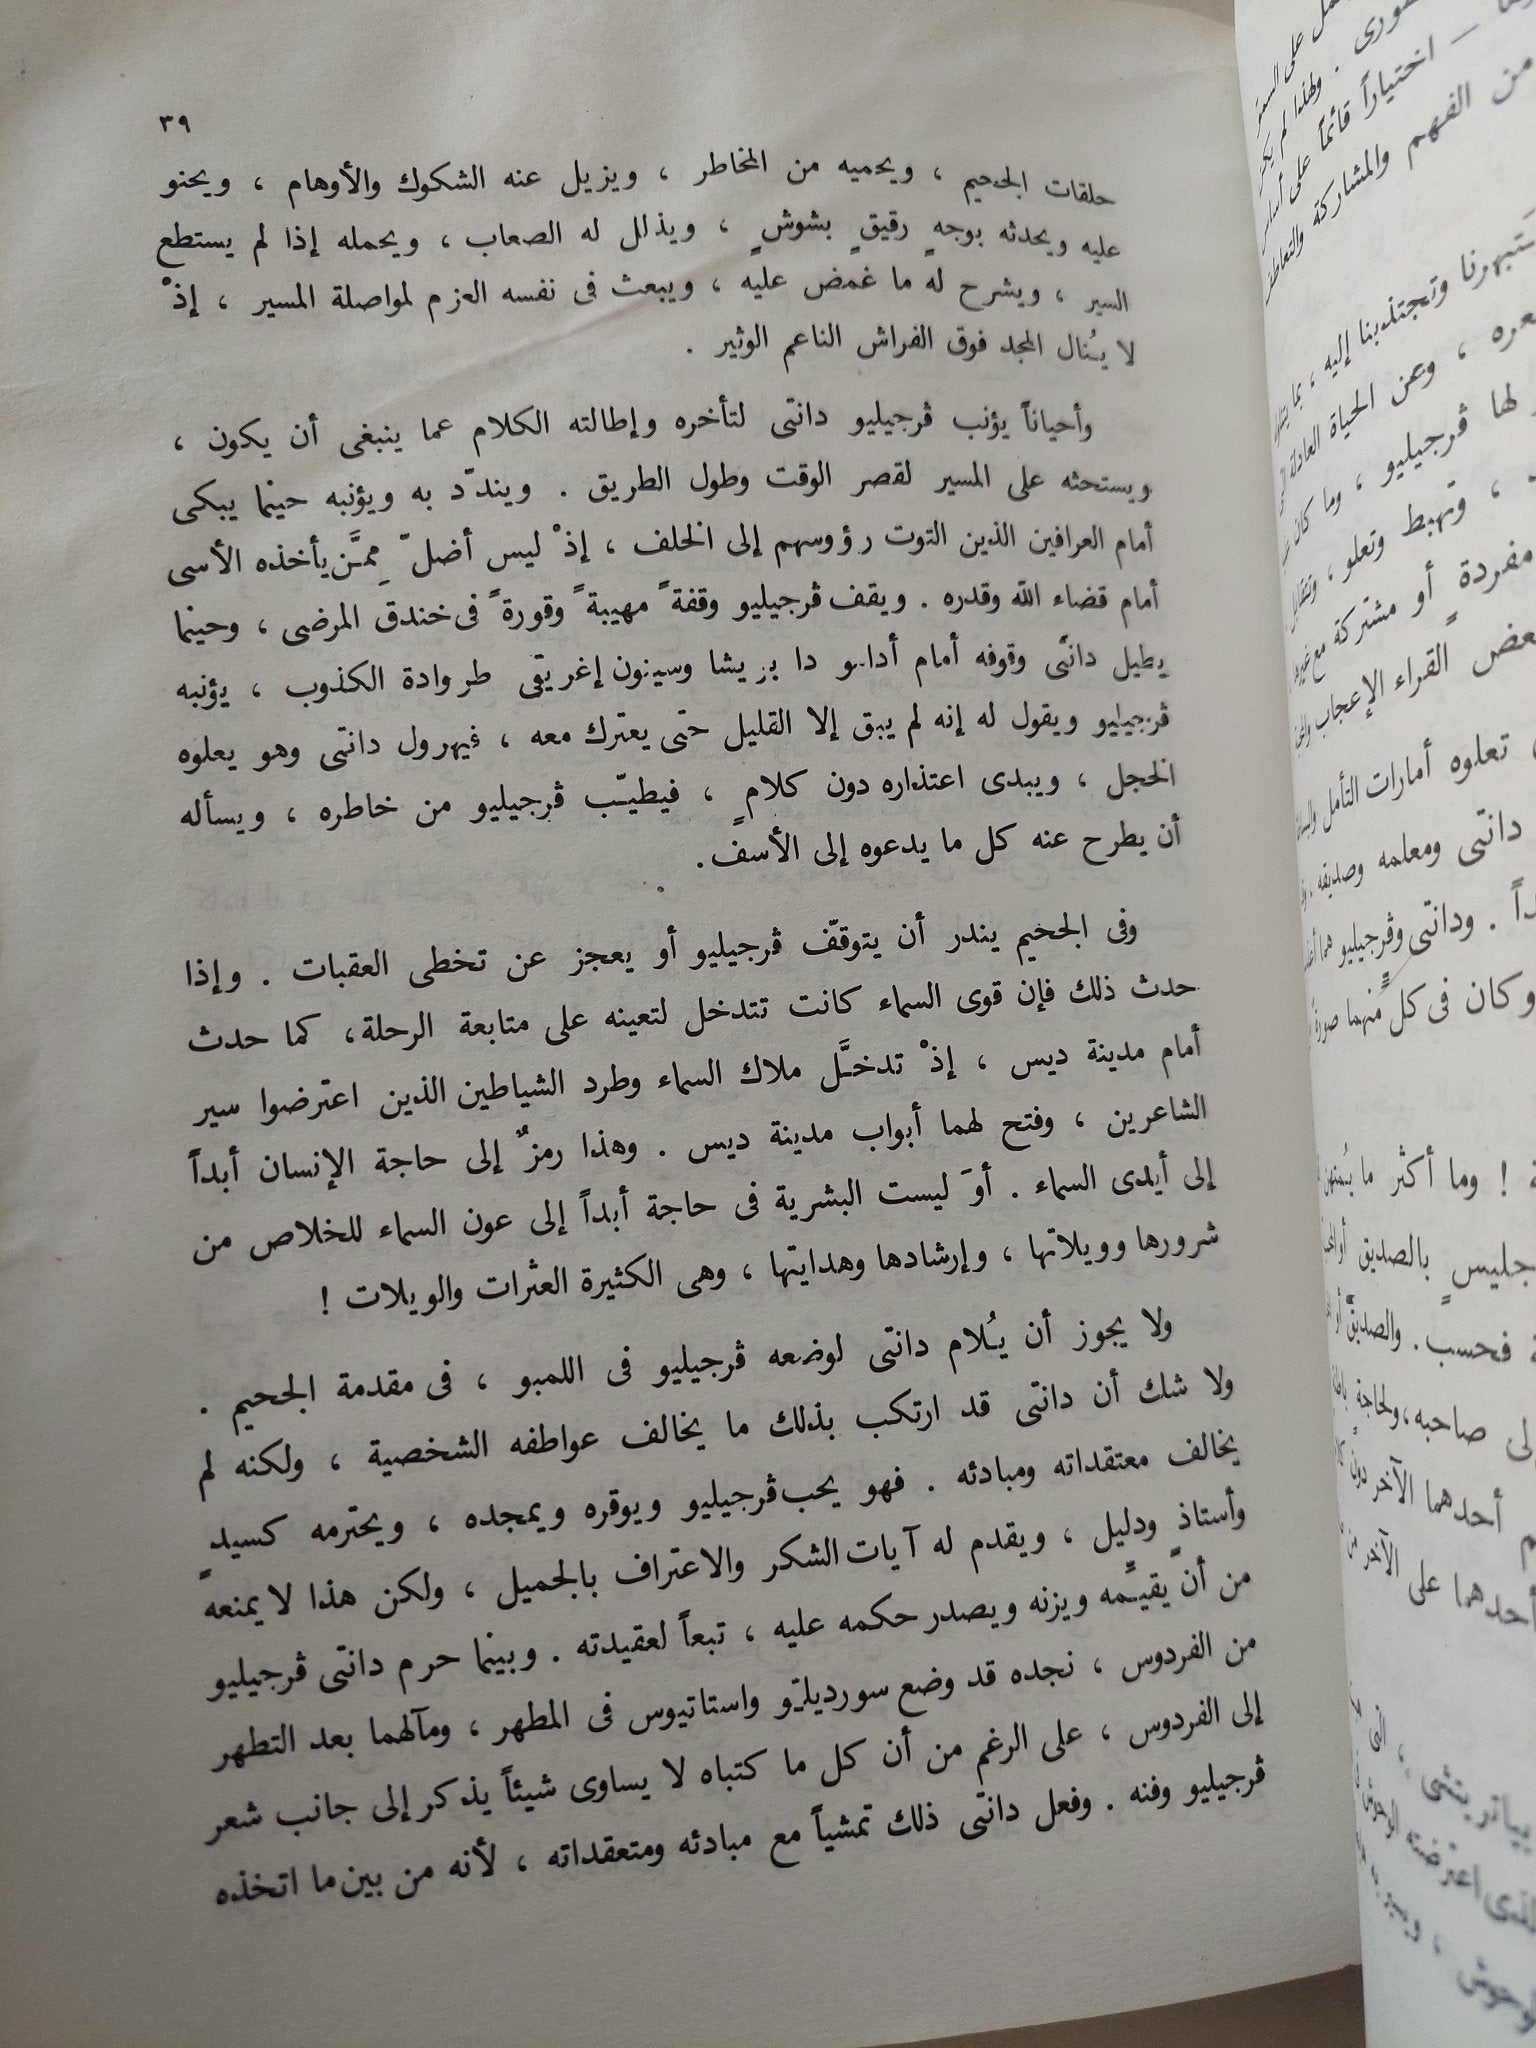 ٣٩
حلقات الجحيم ، ويحميه من المخاطر ، ويزيل عنه الشكوك والأوهام ، ويحنو
عليه ويحدثه بوجهٍ رقيقٍ بشوشٍ ، ويذلل له الصعاب ، ويحمله إذا لم يستطع
السير ، ويشرح له ما غمض عليه ، ويبعث فى نفسه العزم لمواصلة المسير ، إذْ
لا يُنال المجد فوق الفراش الناعم الوثير .
وأحياناً يؤنب ڤرجيليو دانتى لتأخره وإطالته الكلام عما ينبغى أن يكون ،
ويستحثه على المسير لقصر الوقت وطول الطريق . ويندّد به ويؤنبه حينما يبكى
أمام العرافين الذين التوت رؤوسهم إلى الخلف ، إذْ ليس أضلّ مِمَّن يأخذه الأسى
أمام قضاء الله وقدره . ويقف ڤرجيليو وقفةً مهيبةً وقورةً فى خندق المرضى ، وحينما
يطيل دانتى وقوفه أمام أدامو دا بريشا وسينون إغريقى طروادة الكذوب ، يؤنبه
ڤرجيليو ويقول له إنه لم يبق إلا القليل حتى يعترك معه ، فيهرول دانتى وهو يعلوه
الخجل ، ويبدى اعتذاره دون كلامٍ ، فيطيّب ڤرجيليو من خاطره ، ويسأله
أن يطرح عنه كل ما يدعوه إلى الأسف .
وفى الجحيم يندر أن يتوقّف ڤرجيليو أو يعجز عن تخطى العقبات . وإذا
حدث ذلك فإن قوى السماء كانت تتدخل لتعينه على متابعة الرحلة ، كما حدث
أمام مدينة ديس ، إذْ تدخَّل ملاك السماء وطرد الشياطين الذين اعترضوا سير
الشاعرين ، وفتح لهما أبواب مدينة ديس . وهذا رمزٌ إلى حاجة الإنسان أبداً
إلى أيدى السماء . أوَ ليست البشرية فى حاجة أبداً إلى عون السماء للخلاص من
شرورها وويلاتها ، وإرشادها وهدايتها ، وهى الكثيرة العثرات والويلات !
ولا يجوز أن يُلام دانتى لوضعه ڤرجيليو فى اللمبو ، فى مقدمة الجحيم .
ولا شك أن دانتى قد ارتكب بذلك ما يخالف عواطفه الشخصية ، ولكنه لم
يخالف معتقداته ومبادئه . فهو يحب ڤرجيليو ويوقره ويمجده ، ويحترمه كسيدٍ
وأستاذٍ ودليل ، ويقدم له آيات الشكر والاعتراف بالجميل ، ولكن هذا لا يمنعه
من أن يقيِّمه ويزنه ويصدر حكمه عليه ، تبعاً لعقيدته . وبينما حرم دانتى ڤرجيليو
من الفردوس ، نجده قد وضع سورديلّو واستاتيوس فى المطهر ، ومآلهما بعد التطهر
إلى الفردوس ، على الرغم من أن كل ما كتباه لا يساوى شيئاً يذكر إلى جانب شعر
ڤرجيليو وفنه . وفعل دانتى ذلك تمشياً مع مبادئه ومتعقداته ، لأنه من بين ما اتخذه
على
ولهذا لم
اختياراً قائماً على
من الفهم والمشاركة والتعاطف
وتجتذبنا إليه ، بما
وعن الحياة العادلة
لها ڤرجيليو ، وما كان
، وتهبط وتعلو ،
مفردةٍ أو مشتركة مع غيرها
القراء الإعجاب
تعلوه أمارات التأمل
دانتى ومعلمه وصديقه ،
ودانتى وڤرجيليو هما
وكان فى كلٍّ منهما صورة
! وما أكثر ما
بالصديق
فحسب . والصديق أو
صاحبه ، ولحاجة
أحدهما الآخر دون
أحدهما على الآخر